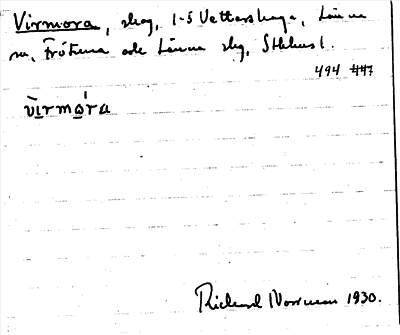 Virmora, skog, 1-5 Vettershaga, Länna
sn, Frötuna och Länna slg, Sthlms l.
494 447
vìrmo̱ŕa
Richard Norrman 1930.